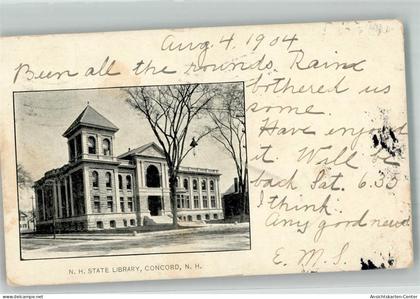 Aug 4, 1904
Been all the rounds. Rain
bothered us
some.
Have enjoyed
it. Will be
back Sat. 6.35
I think.
Any good news
E. M. S.
N. H. STATE LIBRARY, CONCORD, N. H.
www.ansichtskartenversand.com